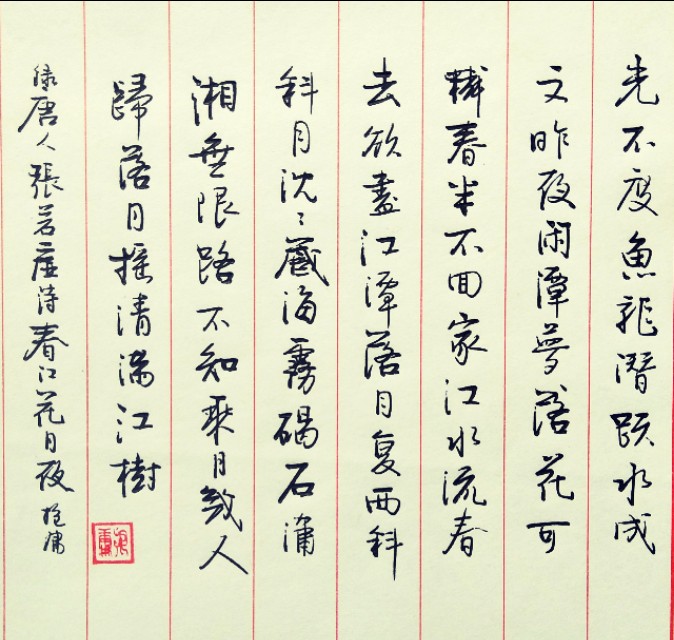 光不度魚龍潛跃水成
文昨夜闲潭夢落花可
憐春半不囬家江水流春
去欲盡江潭落月复西斜
斜月沈〻藏海霧碣石瀟
湘無限路不知乘月幾人
歸落月摇清滿江樹
录唐人張若虛诗春江花月夜